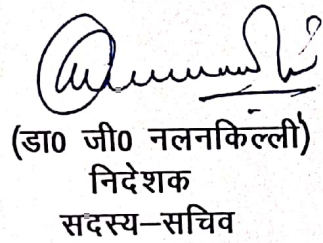 (डा0 जी0 नलनकिल्ली)
निदेशक
सदस्य–सचिव